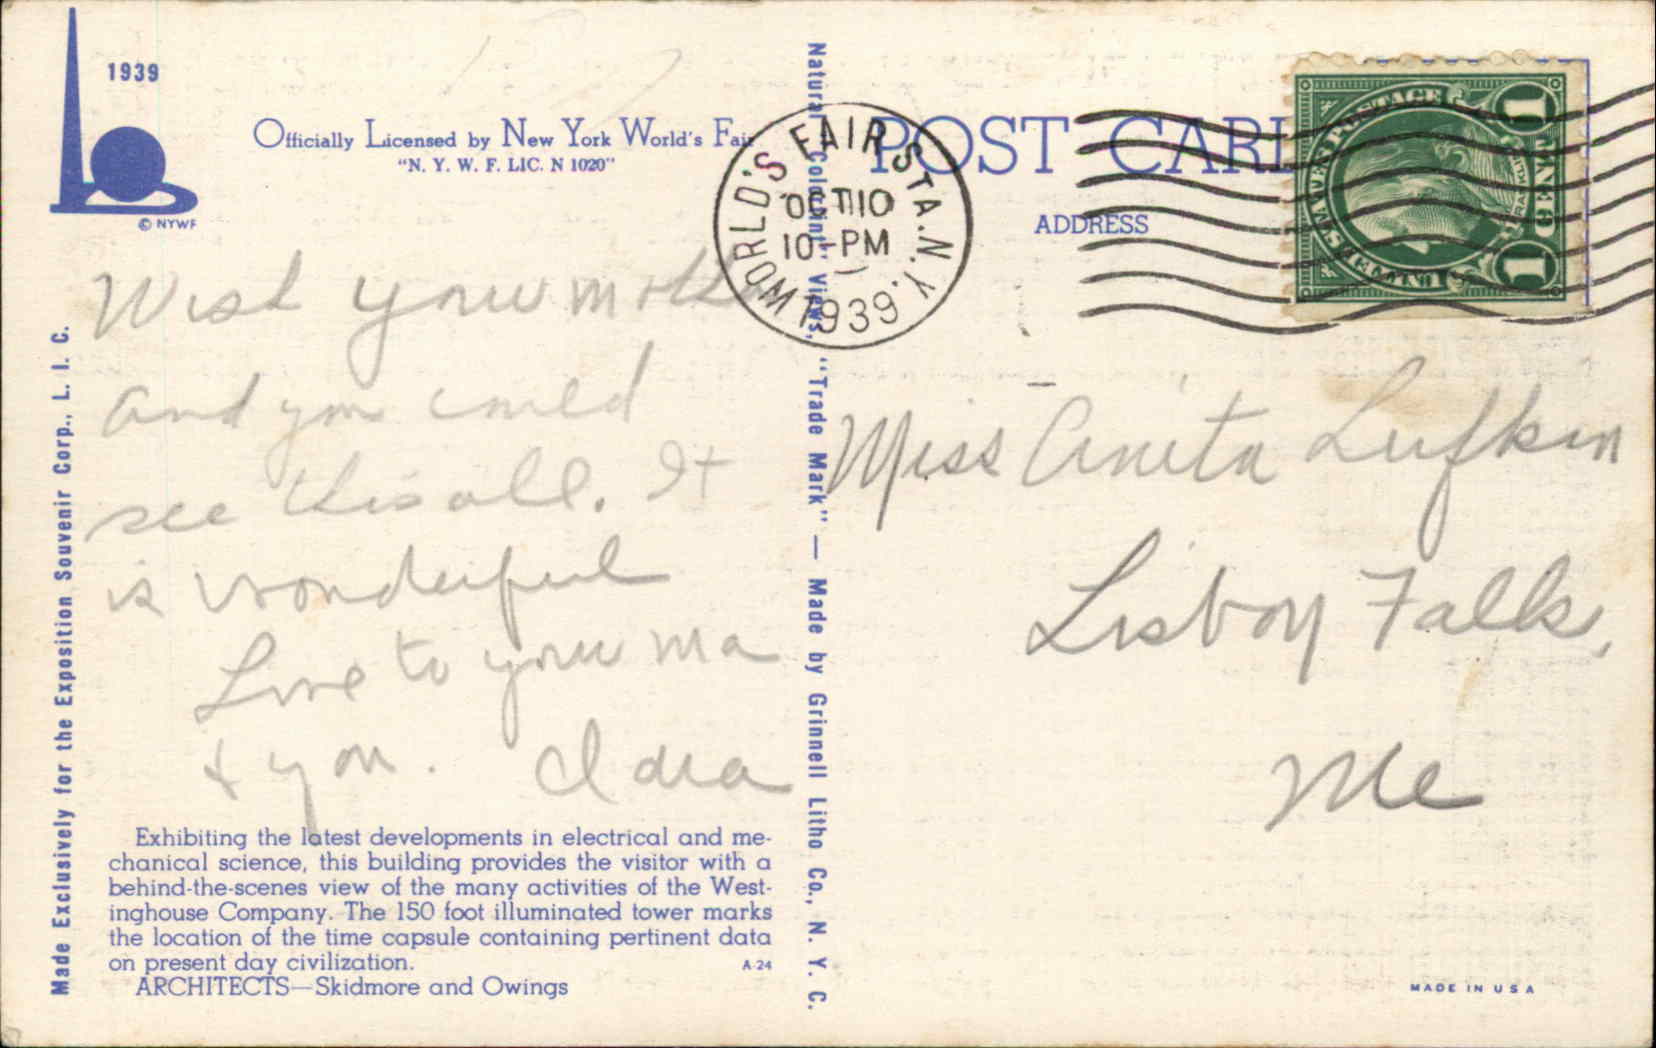 1939
© NYWF
Officially Licensed by New York World's Fair
"N. Y. W. F. LIC. N 1020"
POST CARD
ADDRESS
WORLD'S FAIR STA. N.Y.
OCT 10
10-PM
1939
U.S. POSTAGE
1
1
Wish your moth
and you could
see this all. It
is wonderful
Love to your ma
& you.
Miss Anita Lufkin
Lisbon Falls,
Me
Exhibiting the latest developments in electrical and me-
chanical science, this building provides the visitor with a
behind-the-scenes view of the many activities of the West-
inghouse Company. The 150 foot illuminated tower marks
the location of the time capsule containing pertinent data
on present day civilization.
A-24
ARCHITECTS—Skidmore and Owings
Made Exclusively for the Exposition Souvenir Corp., L. I. C.
Natural Colorprint Views, "Trade Mark" — Made by Grinnell Litho Co., N. Y. C.
MADE IN U S A